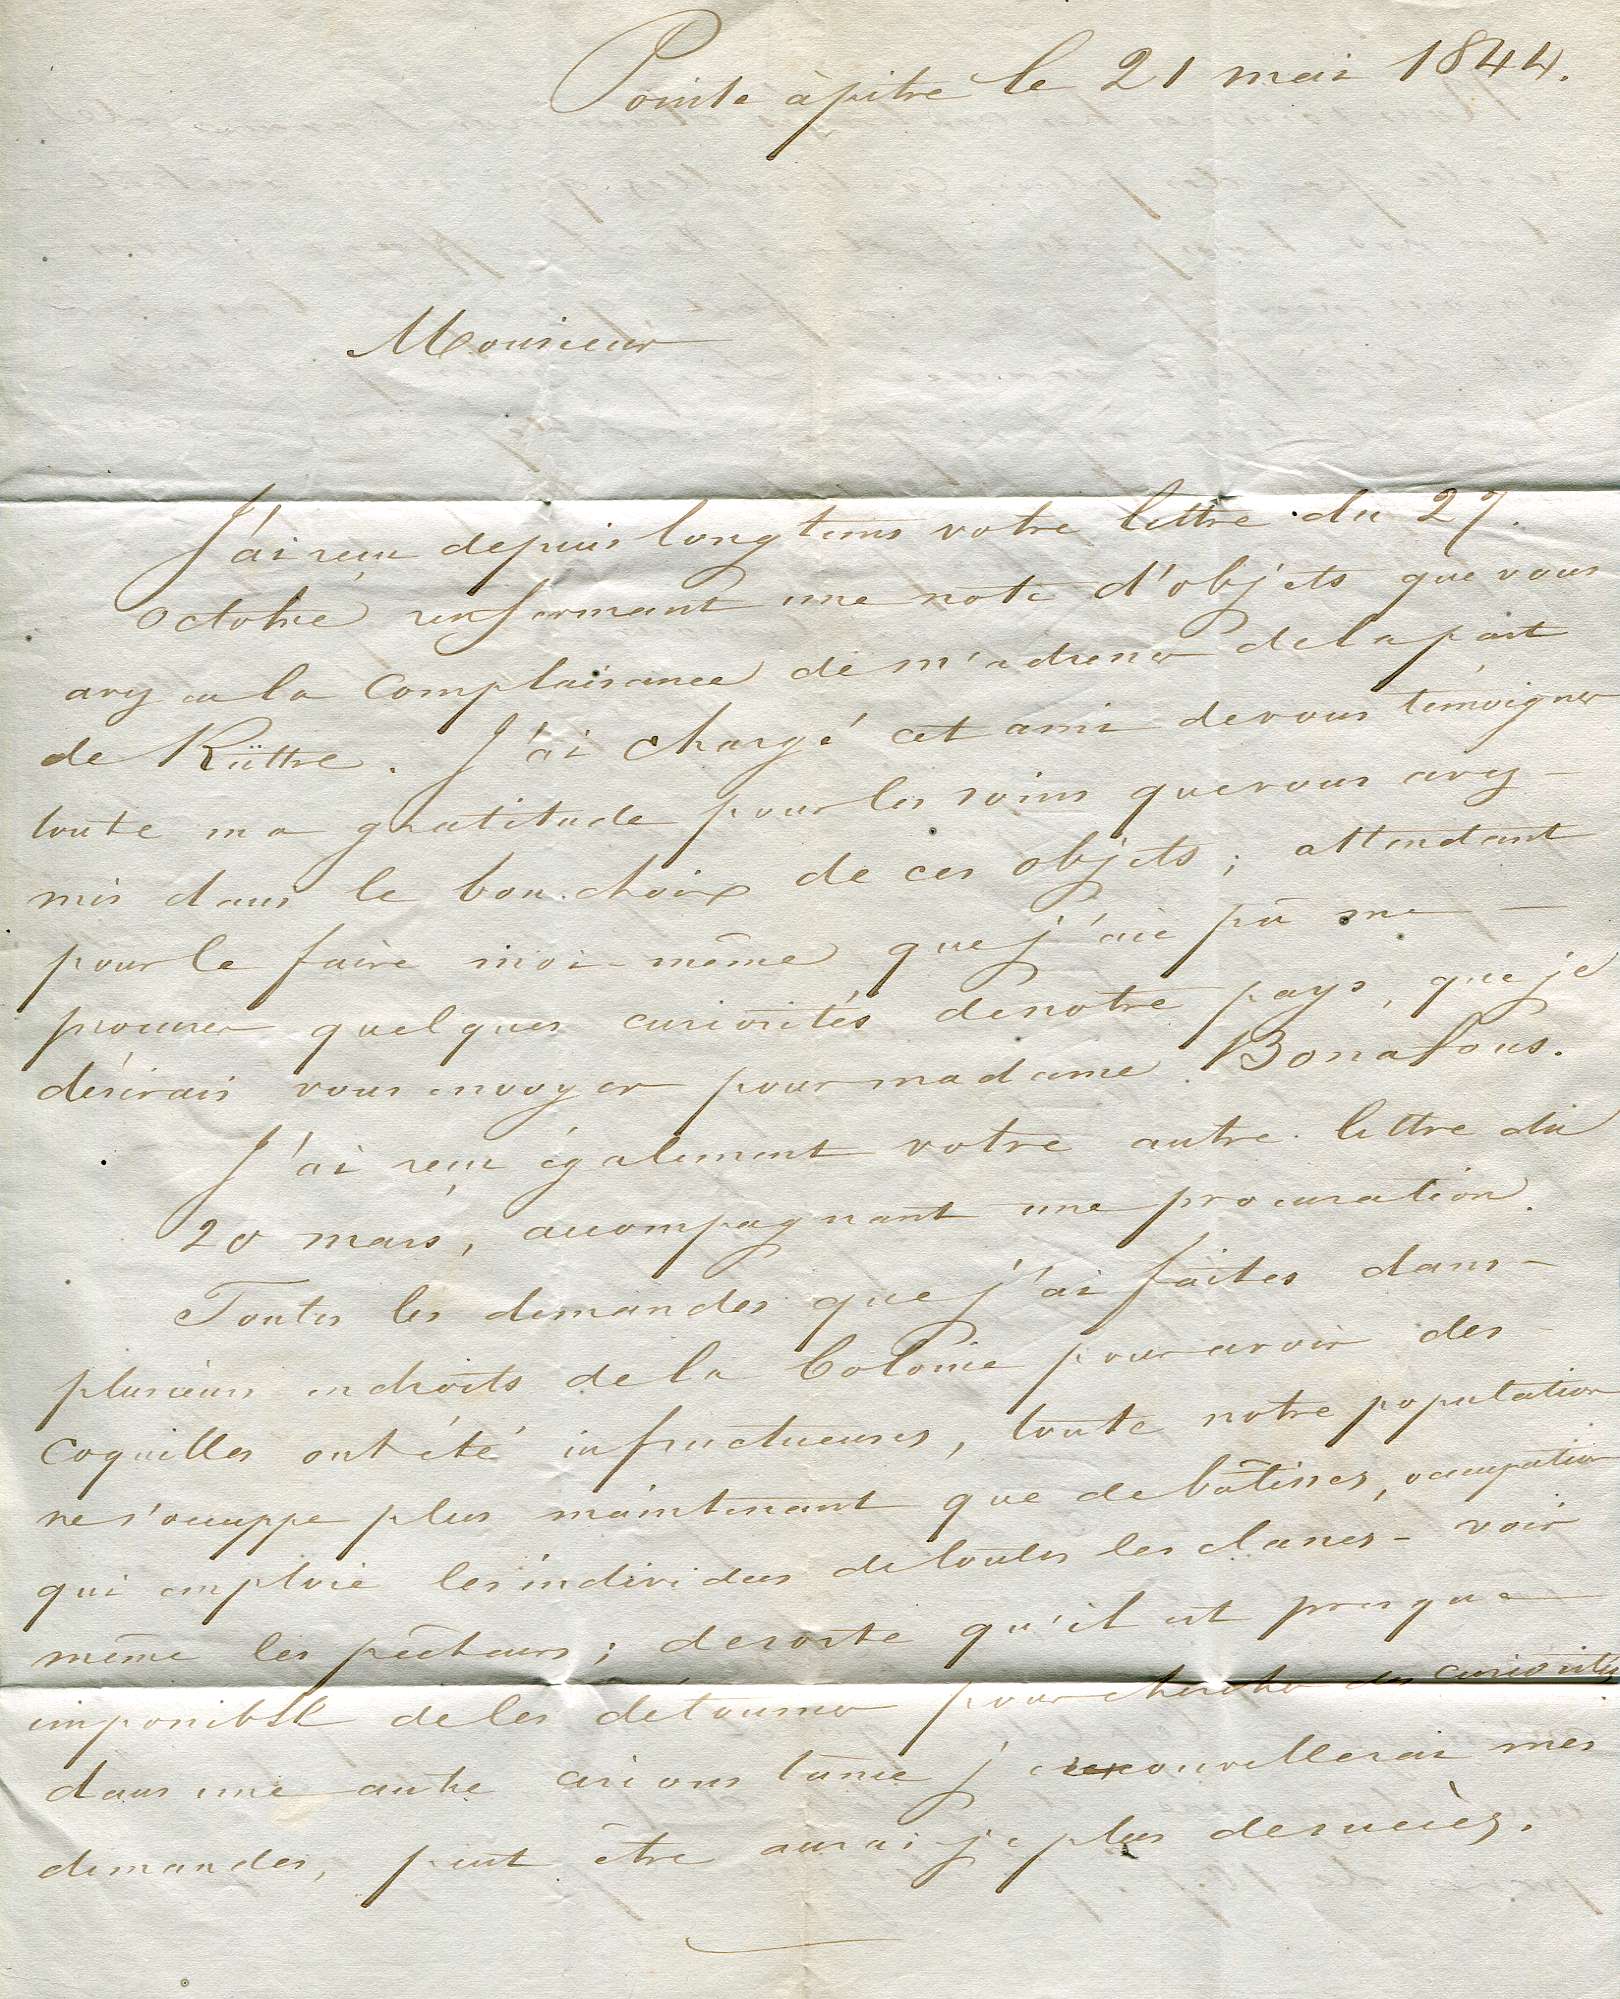 Pointe à pitre le 21 mai 1844.
Monsieur
J'ai reçu depuis longtems votre lettre du 27.
octobre renfermant une note d'objets que vous
avez eu la Complaisance de m'adresser de la part
de Küttre. J'ai chargé cet ami de vous témoigner
toute ma gratitude pour les soins que vous avez –
mis dans le bon choix de ces objets ; attendant
pour le faire moi-même que j'aie pû me –
procurer quelques curiosités de notre pays, que je
désirais vous envoyer pour madame Bonafous.
J'ai reçu également votre autre lettre du
20 mars, accompagnant une procuration.
Toutes les demandes que j'ai faites dans –
plusieurs endroits de la Colonie pour avoir des
coquilles ont été infructueuses, toute notre population
ne s'occuppe plus maintenant que de bâtisses, occupation
qui emploie les individus de toutes les classes – voir
même les pêcheurs ; de sorte qu'il est presque –
impossible de les détourner pour chercher des curiosités,
dans une autre circonstance je renouvellerai mes
demandes, peut être aurai je plus de succès.